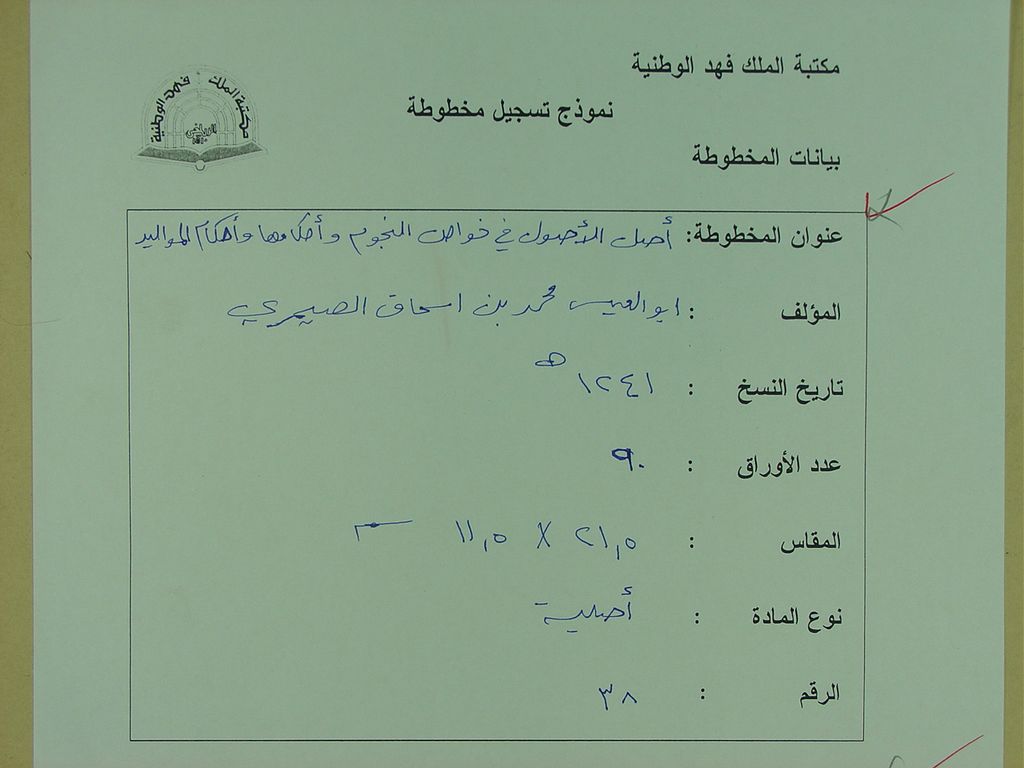 مكتبة الملك فهد الوطنية
مكتبة الملك فهد الوطنية
نموذج تسجيل مخطوطة
بيانات المخطوطة
عنوان المخطوطة: أصل الأصول في خواص النجوم وأحكامها وأحكام المواليد
المؤلف : ابو العبيس محمد بن اسحاق الصيمري
تاريخ النسخ : ١٢٤١ هـ
عدد الأوراق : ٩٠
المقاس : ٢١,٥ X ١١,٥ سم
نوع المادة : أصلية
الرقم : ٣٨